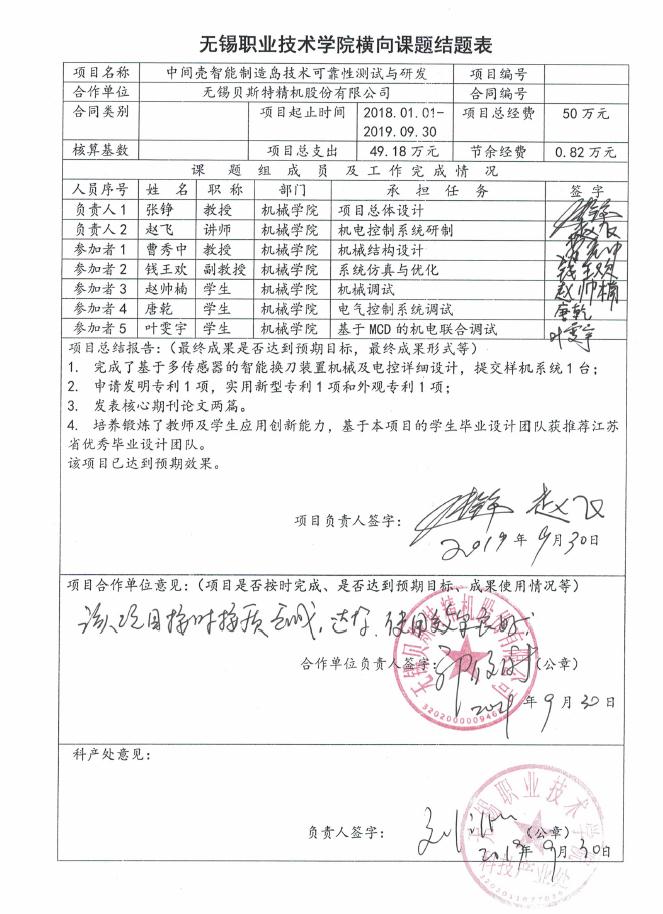 无锡职业技术学院横向课题结题表
项目名称 中间壳智能制造岛技术可靠性测试与研发 项目编号
合作单位 无锡贝斯特精机股份有限公司 合同编号
合同类别 项目起止时间 2018.01.01-2019.09.30 项目总经费 50 万元
核算基数 项目总支出 49.18 万元 节余经费 0.82 万元
课 题 组 成 员 及 工 作 完 成 情 况
人员序号 姓 名 职 称 部门 承 担 任 务 签 字
负责人 1 张铮 教授 机械学院 项目总体设计
负责人 2 赵飞 讲师 机械学院 机电控制系统研制 赵飞
参加者 1 曹秀中 教授 机械学院 机械结构设计
参加者 2 钱王欢 副教授 机械学院 系统仿真与优化 钱王欢
参加者 3 赵帅楠 学生 机械学院 机械调试 赵帅楠
参加者 4 唐乾 学生 机械学院 电气控制系统调试 唐乾
参加者 5 叶雯宇 学生 机械学院 基于 MCD 的机电联合调试 叶雯宇
项目总结报告：（最终成果是否达到预期目标，最终成果形式等）
1. 完成了基于多传感器的智能换刀装置机械及电控详细设计，提交样机系统 1 台；
2. 申请发明专利 1 项，实用新型专利 1 项和外观专利 1 项；
3. 发表核心期刊论文两篇。
4. 培养锻炼了教师及学生应用创新能力，基于本项目的学生毕业设计团队获推荐江苏
省优秀毕业设计团队。
该项目已达到预期效果。
项目负责人签字： 张铮 赵飞
2019 年 9 月 30 日
项目合作单位意见：（项目是否按时完成、是否达到预期目标、成果使用情况等）
该项目按时按质完成，达标，使用效果良好。
合作单位负责人签字： （公章）
2019 年 9 月 30 日
无锡贝斯特精机股份有限公司
科产处意见：
负责人签字： （公章）
2019 年 9 月 30 日
无锡职业技术学院
科技产业处